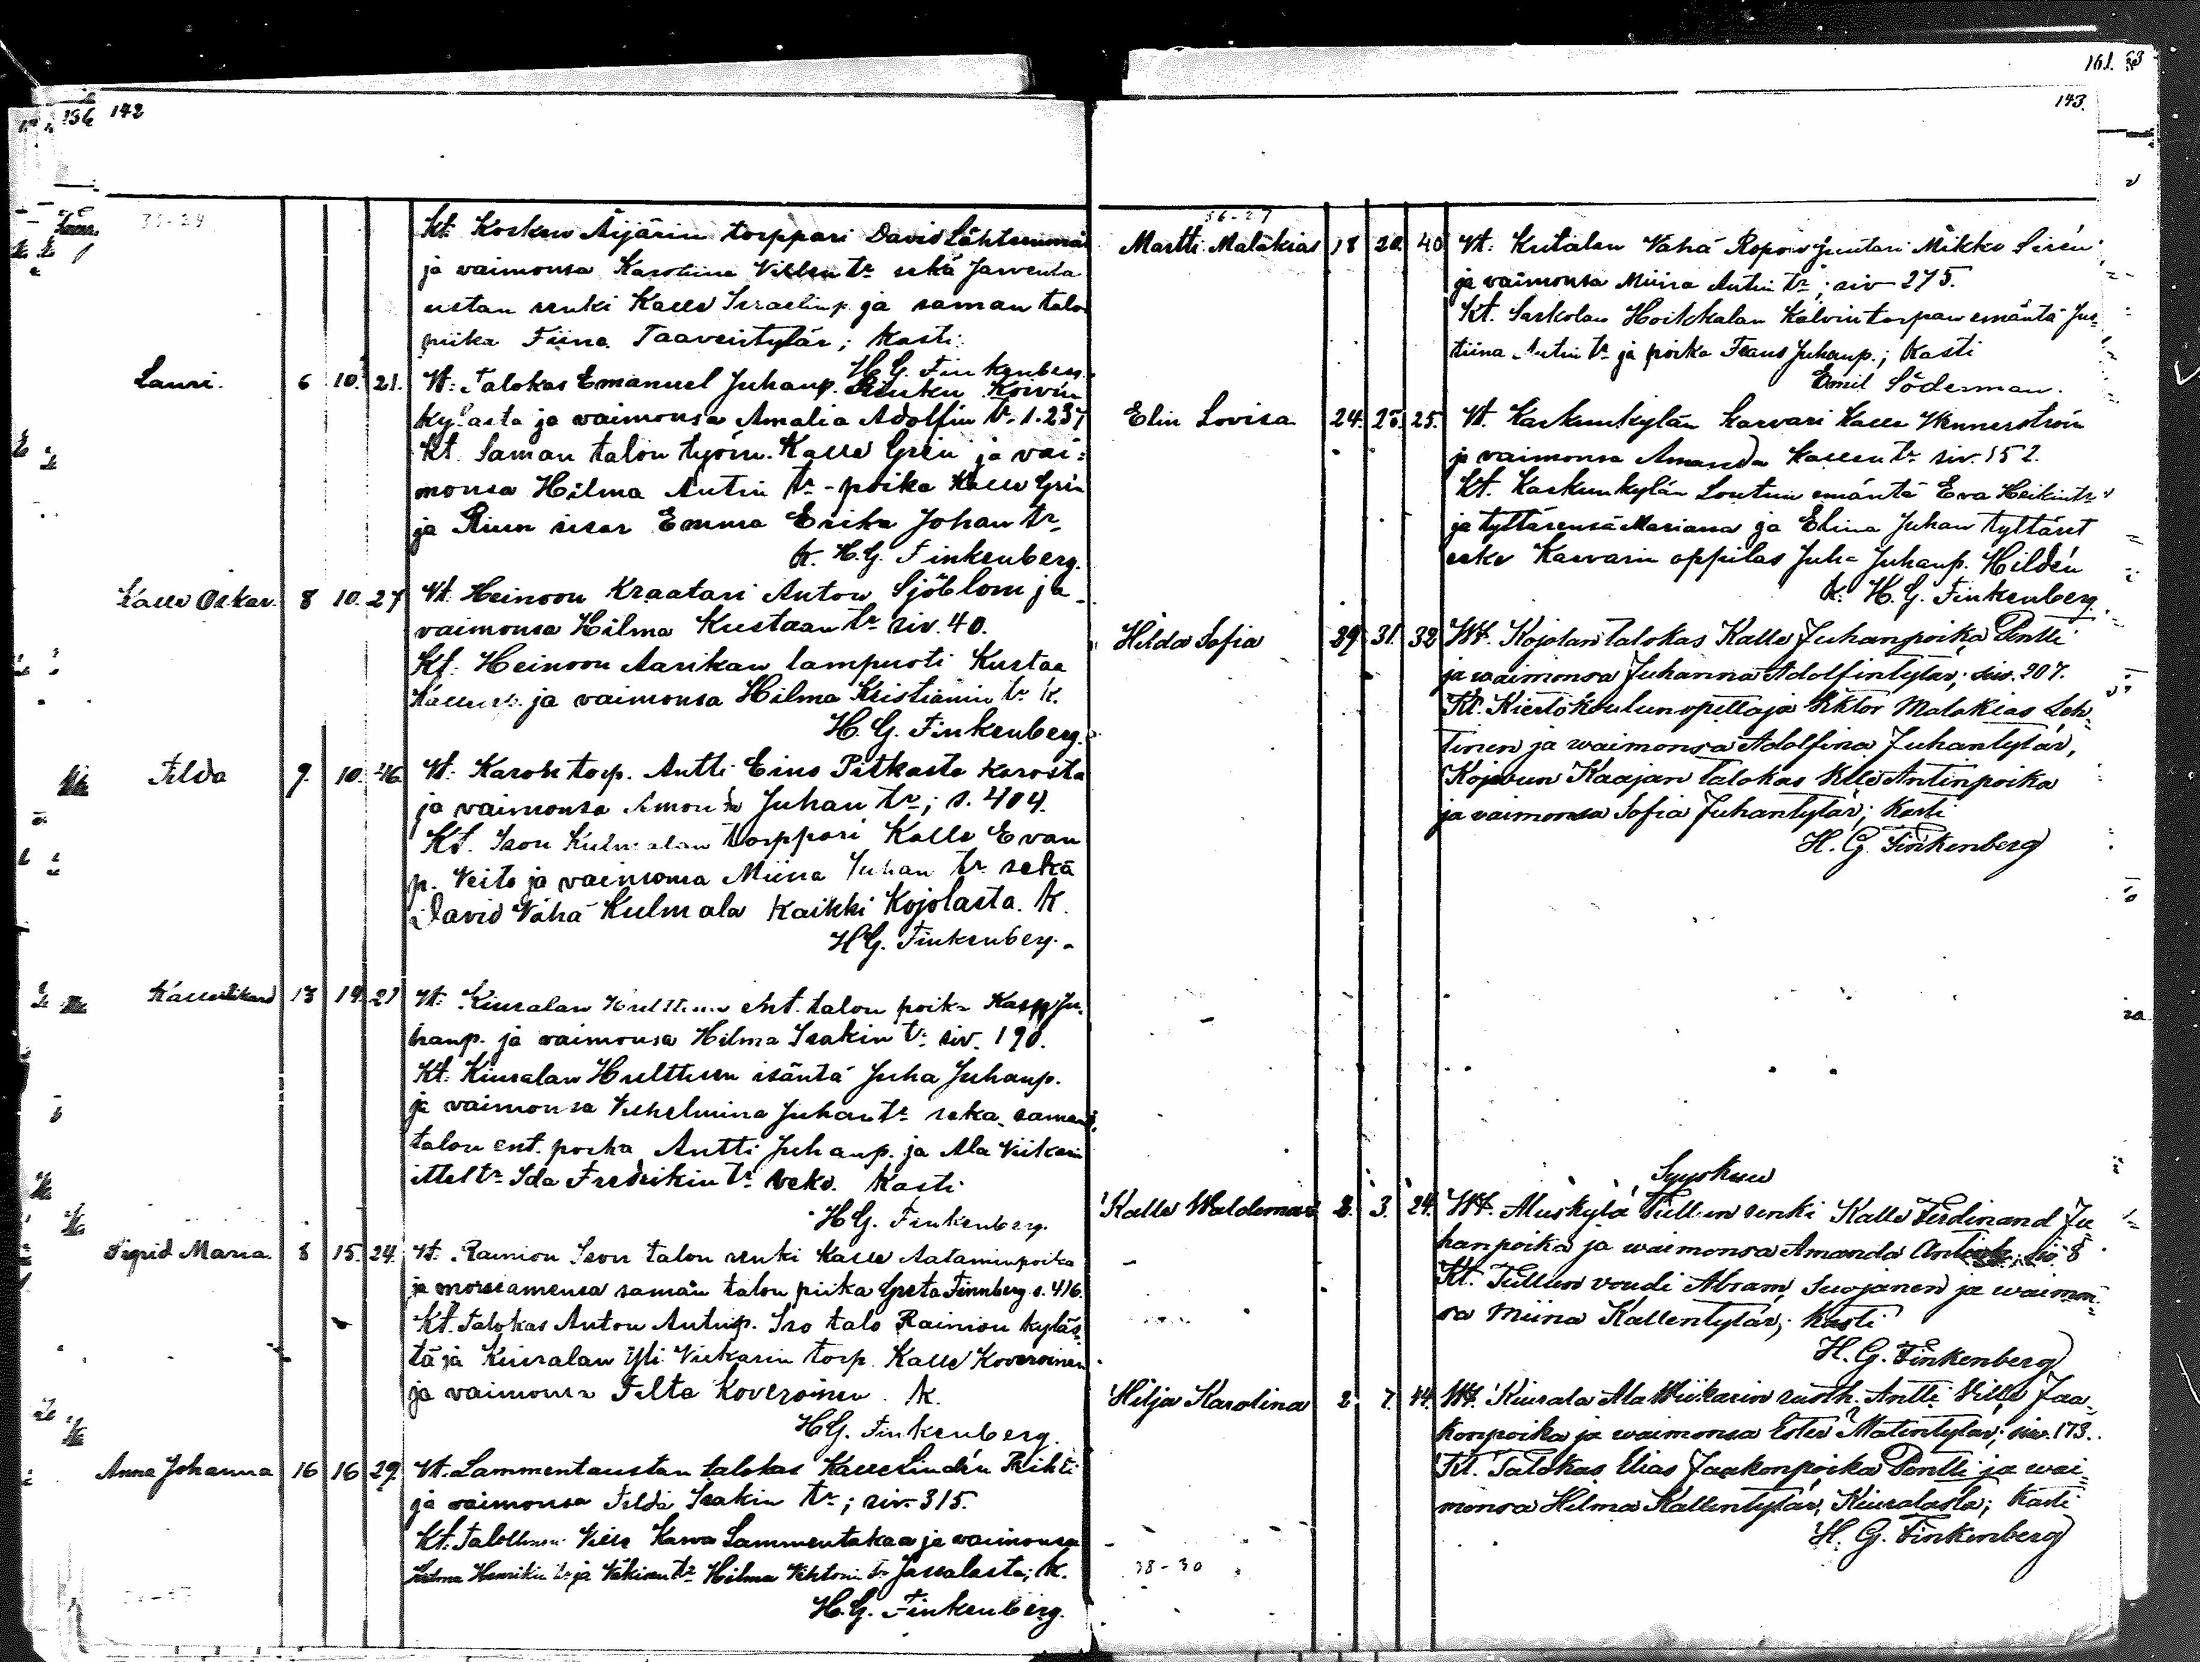 136 142
Kt. Kosken Äijärin torppari David Lähteenmäk
ja vaimonsa Karoliina Villen tr sekä Järventa
ustan renki Kalle Israelinp. ja saman talon
piika Fiina Taaventytär; Kasti
H.G. Finkenberg.
Lauri. 6 10. 21. Vt: Talokas Emanuel Juhanp. Koivin
kylästä ja vaimonsa Amalia Adolfin tr. s. 237
Kt. Saman talon työm. Kalle Grén ja vai=
monsa Hilma Antin tr - poika Kalle Grén
ja sisar Emma Erika Johan tr.
K. H.G. Finkenberg.
Kalle Oskar. 8 10. 27 Vt. Heinoon Kraatari Anton Sjöblom ja
vaimonsa Hilma Kustaan tr siv. 40.
Kt. Heinoon Aarikan lampuoti Kustaa
ja vaimonsa Hilma Kristianin tr. K.
H.G. Finkenberg.
Filda 9. 10. 46. Vt. torp. Antti Eino Pitkästä Karosta
ja vaimonsa Amanda Juhan tr; s. 404.
Kt. Ison Kulmalan torppari Kalle Evan
p. Veito ja vaimonsa Miina Juhan tr sekä
David Vähä Kulmala Kaikki Kojolasta. K.
H.G. Finkenberg.
13 14 21 Vt. Kiuralan ent. talon poika Ju-
hanp. ja vaimonsa Hilma Isakin tr. siv. 190.
Kt. Kiuralan Hulttisen isäntä Juha Juhanp.
ja vaimonsa Vilhelmina Juhan tr sekä saman
talon ent. poika Antti Juhanp. ja Ala Viikarin
ittell. tr Ida Fredrikin tr Kasti
H.G. Finkenberg.
Sigrid Maria. 8 15. 24. Vt. Rainion Ison talon renki Kalle Aataminpoika
ja morsiamensa saman talon piika Greta Finnberg s. 416.
Kt. Talokas Anton Antinp. Iso talo Rainion kyläs-
tä ja Kiuralan Yli Viikarin torp. Kalle Koveroinen
ja vaimonsa Filta Koveroinen. K.
H.G. Finkenberg.
Anna Johanna 16 16 29. Vt. Lammentaustan talokas Kalle Lindén Prihti
ja vaimonsa Filda Isakin tr; siv. 315.
Kt. Ville Lammentakaa ja vaimonsa
Henrikin tr ja tr Hilma Vihtorin tr Jassalasta; K.
H.G. Finkenberg.
161.
143.
36-27
Martti Malakias 18 20. 40 Vt: Kutalan Vähä Juntari Mikko Sirén
ja vaimonsa Miina Antin tr; siv 275.
Kt. Sarkolan Hoikkalan Kälvin torpan emäntä Jus-
tiina Antin tr ja poika Frans Juhanp.; Kasti
Emil Söderman.
Elin Lovisa 24. 25. 25. Vt. Karkunkylän Karvari Kalle Wennerström
ja vaimonsa Amanda Kallen tr siv. 152.
Kt. Karkunkylän Loutun emäntä Eva Heikin tr
ja tyttärensä Mariana ja Elina Juhan tyttäret
sekä Karvarin oppilas Juha Juhanp. Hildén
K. H.G. Finkenberg.
Hilda Sofia 29 31. 32 Wt. Kojolan talokas Kalle Juhanpoika Pentti
ja waimonsa Juhanna Adolfintytär; siv. 207.
Kt. Kiertokoulunopettaja Viktor Malakias Leh-
tinen ja waimonsa Adolfina Juhantytär,
Kaajan talokas Antinpoika
ja vaimonsa Sofia Juhantytär; Kasti
H. G. Finkenberg
Syyskuu
Kalle Waldemar 2. 3. 24. Wt. Muskylä Tullun renki Kalle Ferdinand Ju
hanpoika ja waimonsa Amanda siv 8
Kt. Tullun voudi Abram Suojanen ja waimon-
sa Miina Kallentytär; Kasti
H. G. Finkenberg
Hilja Karolina 2 7. 44. Wt. Kiurala Ala Wiikarin rusth. Antti Ville Jaa-
konpoika ja waimonsa Ester Matintytär; siv. 173.
Kt. Talokas Elias Jaakonpoika Pentti ja wai-
monsa Hilma Kallentytär, Kiuralasta; Kasti
H. G. Finkenberg
38-30